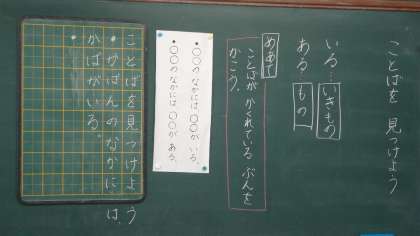 ことばを 見つけよう
いる…いきもの
ある…もの
めあて
ことばが かくれている ぶんを
かこう。
•〇〇の なかには 〇〇が いる。
•〇〇の なかには 〇〇が ある。
ことばを見つけよう
•かばんのなかには、
かばがいる。
•